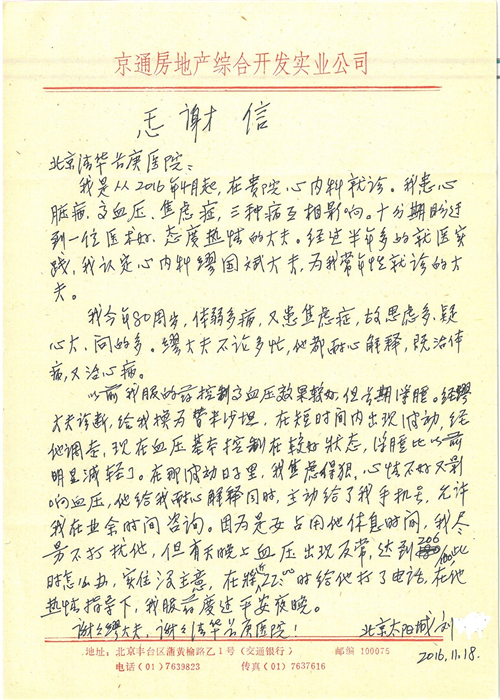 京通房地产综合开发实业公司
感谢信
北京清华长庚医院：
我是从2016年4月起，在贵院心内科就诊。我患心
脏病、高血压、焦虑症，三种病互相影响。十分期盼遇
到一位医术好、态度热情的大夫。经过半年多的就医实
践，我认定心内科缪国斌大夫，为我常年性就诊的大
夫。
我今年80周岁，体弱多病，又患焦虑症，故思虑多、疑
心大、问的多。缪大夫不论多忙，他都耐心解释，既治体
病，又治心病。
以前我服的药控制高血压效果较好，但长期浮肿。经缪
大夫诊断，给我换为替米沙坦，在短时间内出现波动，经
他调整，现在血压基本控制在较好状态，浮肿比以前
明显减轻了。在那波动日子里，我焦虑得狠，心情不好又影
响血压，他给我耐心解释同时，主动给了我手机号，允许
我在业余时间咨询。因为是要占用他休息时间，我尽
量不打扰他，但有天晚上血压出现反常，达到206/100，此
时怎么办，实在没主意，在接近22:00时给他打了电话，在他
热情指导下，我服药度过平安夜晚。
谢谢缪大夫，谢谢清华长庚医院！
北京太阳城 刘
2016.11.18.
地址：北京丰台区蒲黄榆路乙1号（交通银行）
邮编 100075
电话（01）7639823
传真（01）7637616